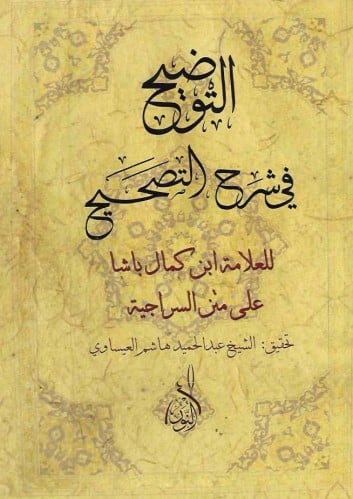 التوضيح
في شرح التصحيح
للعلامة ابن كمال باشا
على متن السراجية
تحقيق: الشيخ عبد الحميد هاشم العيساوي
دار النور